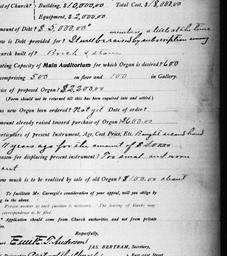 of Church? Building, $10,000.00 Total Cost, $12,000.00
Equipment, $2,000.00
mount of Debt? $5,000.00
is Debt provided for?
urch built of? Brick & stone
ating Capacity of Main Auditorium for which Organ is desired? 600
omprising 500 on floor and 100 in Gallery.
rice of proposed Organ? $2,200.00
(Form should not be returned till this has been inquired into and stated.)
as new Organ been ordered? Not yet Date of order?
mount already raised toward purchase of Organ? $600.00
articulars of present Instrument, Age, Cost Price, Etc. Bought second hand
years ago for the amount of
eason for displacing present instrument? Too small and worn
out
ow much is to be realized by sale of old Organ? $100.00 about
To facilitate Mr. Carnegie's consideration of your appeal, will you oblige by
ing in the above.
Precise answer to each question is necessary. The leaving of blanks may
correspondence to be filed.
Application should come from Church authorities and not from private
ies.
Respectfully,
JAS. BERTRAM, Secretary,